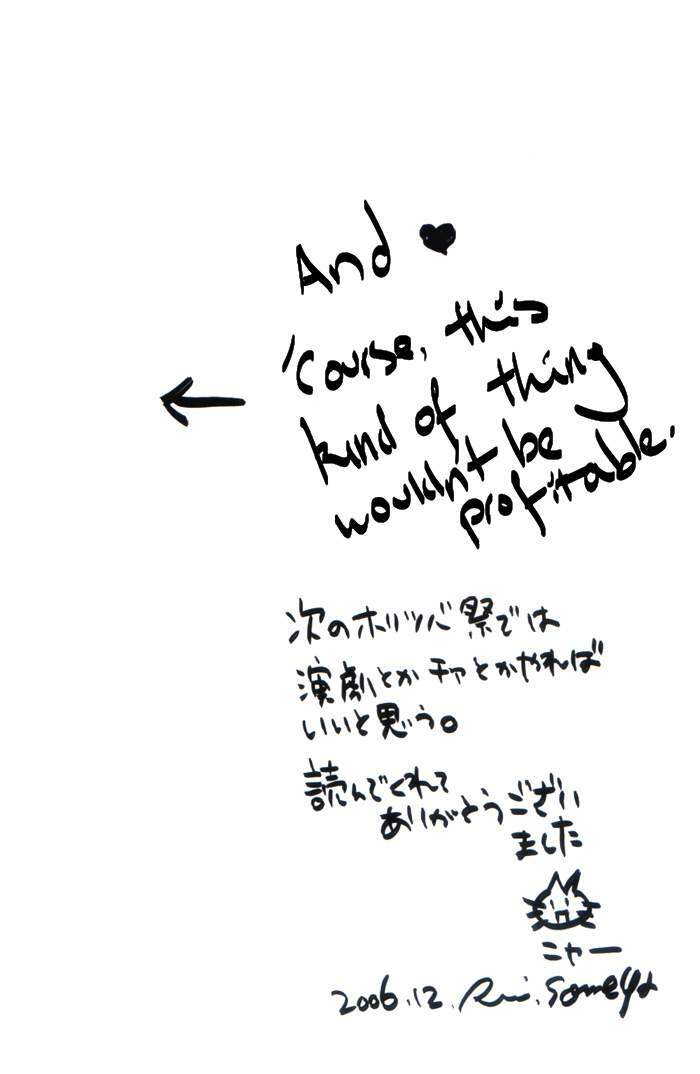 And ♥
'Course, this
kind of thing
wouldn't be
profitable.
次のホリツバ祭では
演劇とかチアとかやれば
いいと思う。
読んでくれて
ありがとうござい
ました
ニャー
2006.12. Rui. Someya